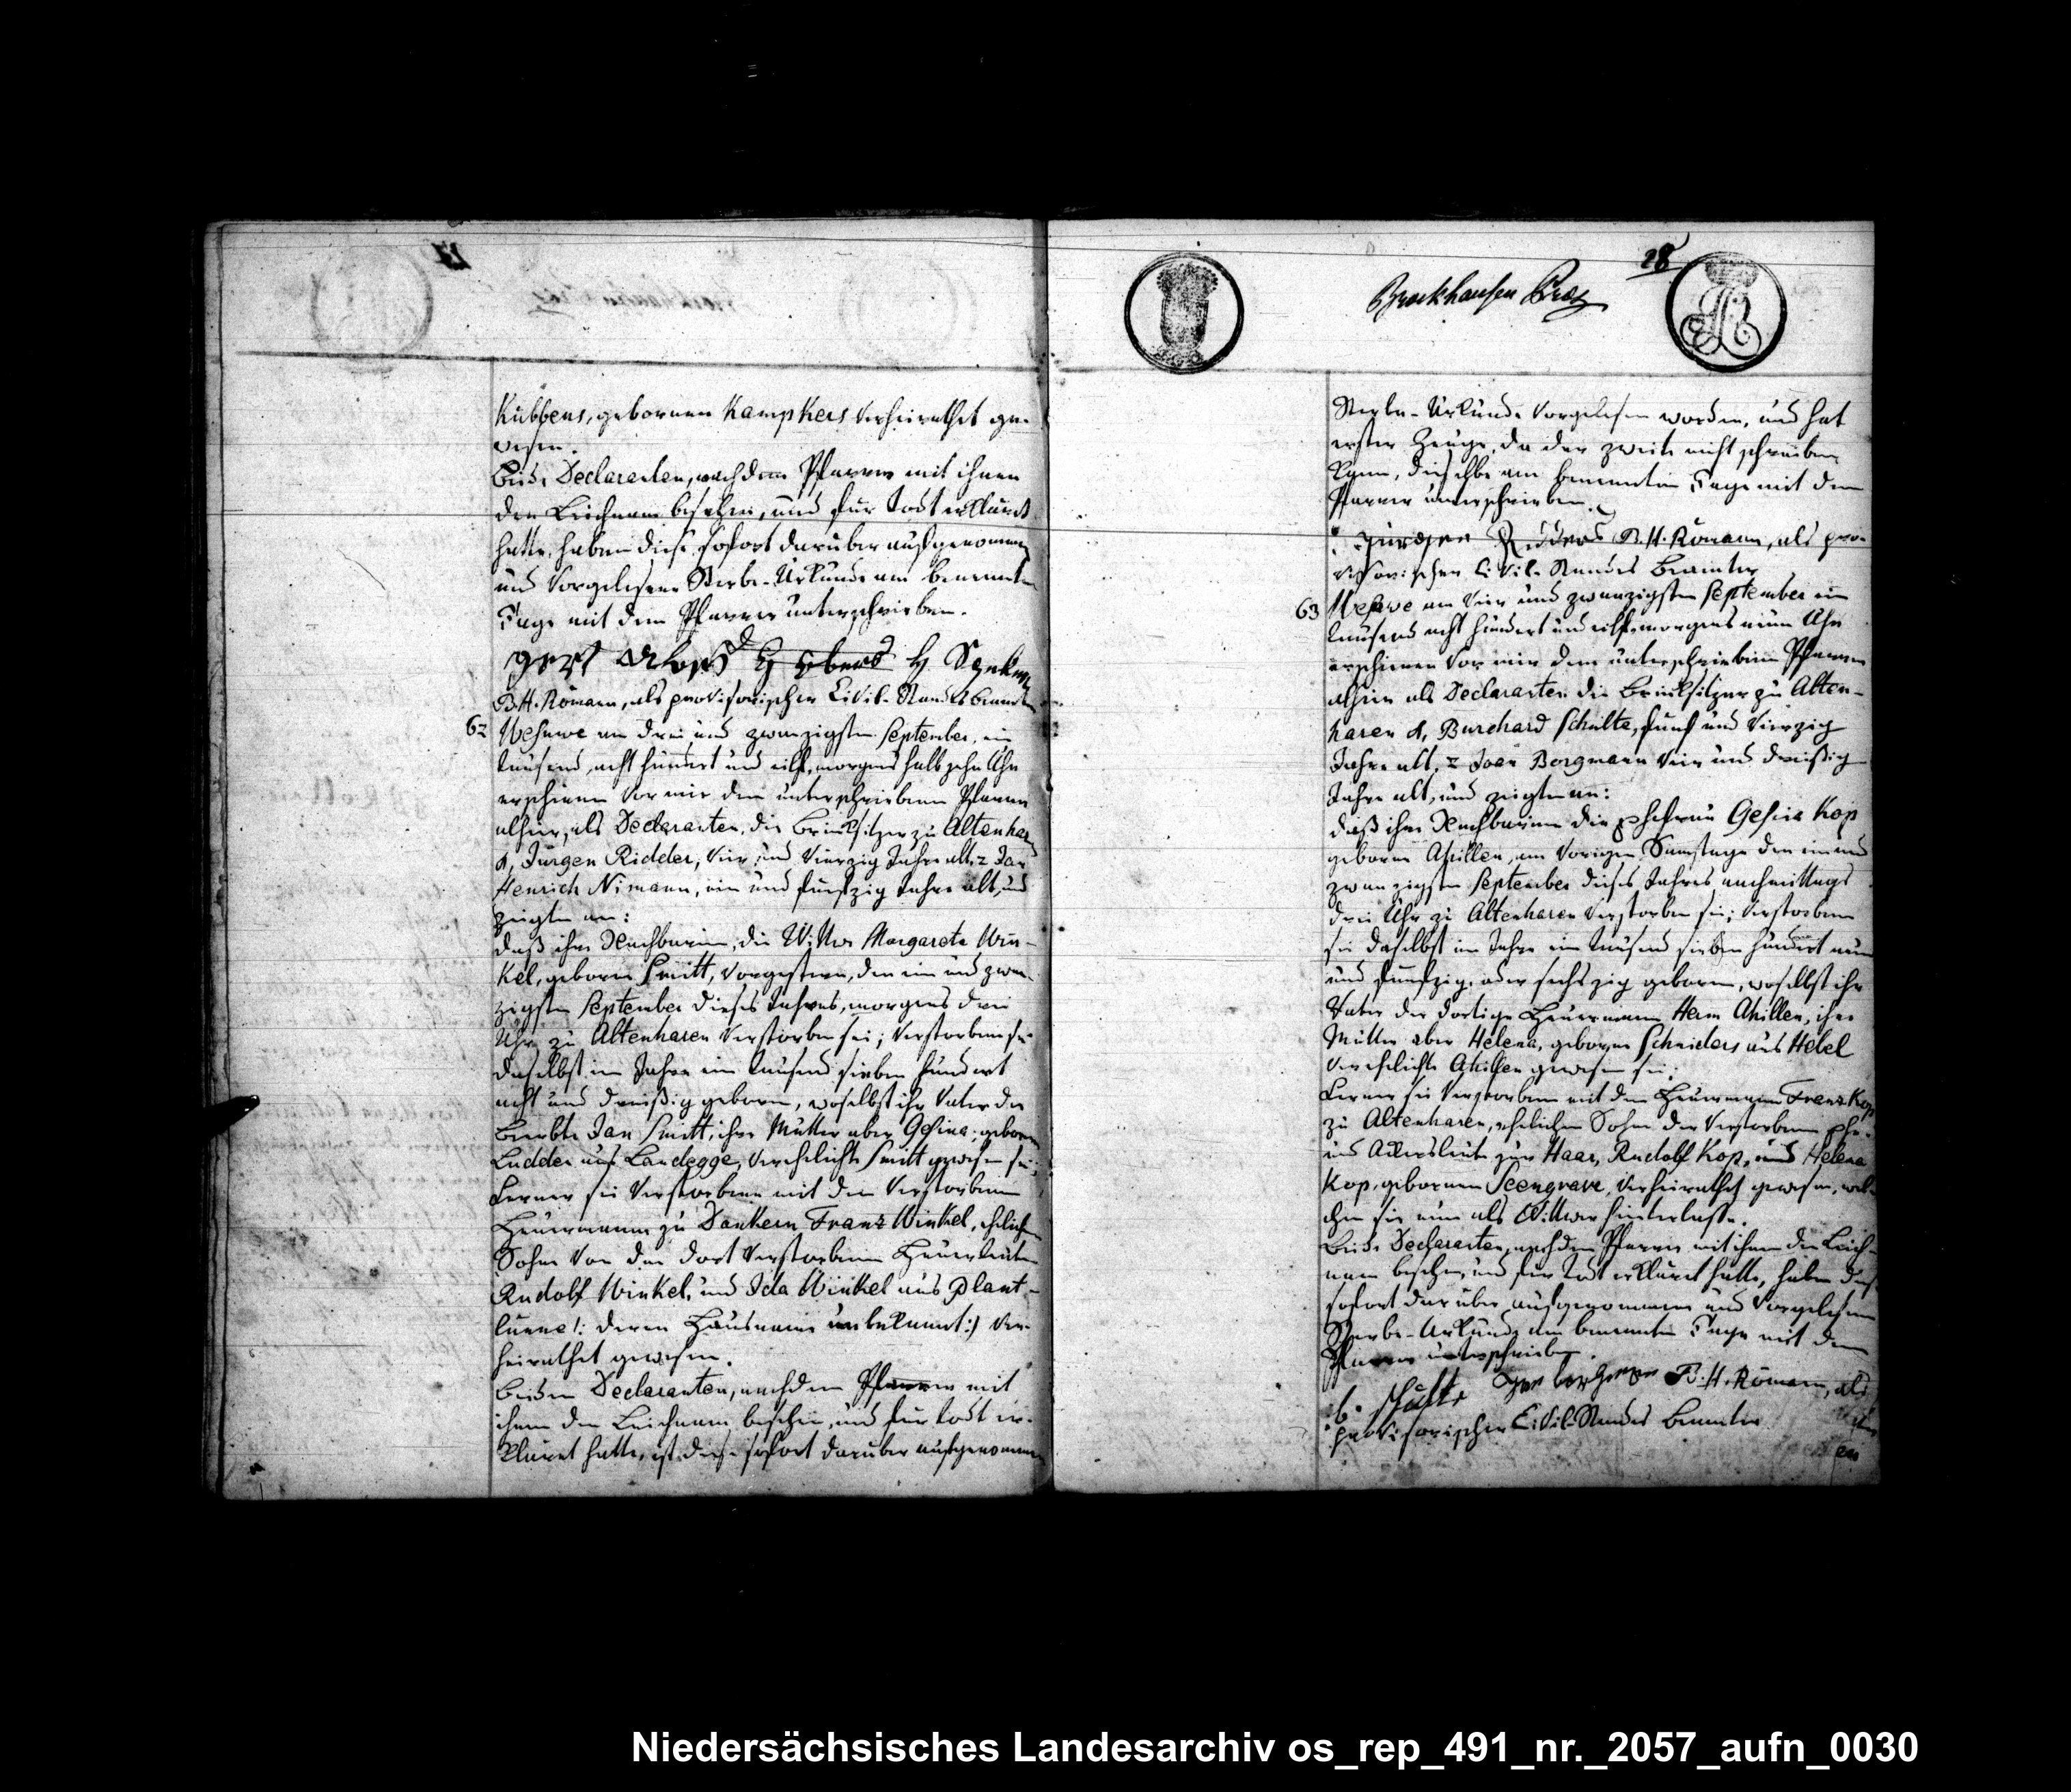 Kübbens, gebornen Kampkers verheirathet ge-
wesen.
Beide Declaranten, nachdem Pfarrer mit ihnen
den Leichnam besehen, und für todt erklärt
hatte, haben diese sofort darüber aufgenommene
und vorgelesene Sterbe-Urkunde am benannten
Tage mit dem Pfarrer unterschrieben.
B. H. Römann, als provisorischer Civil-Standes Beamter
62 Wesuwe am drei und zwanzigsten September, ein
tausend, acht hundert und eilf, morgens halb zehn Uhr
erschienen vor mir dem unterschriebenen Pfarrer
alhier, als Declaranten, die Brinksitzer zu Altenharen
1, Jürgen Ridder, vier und vierzig Jahre alt, 2 Jan
Henrich Nimann, ein und funfzig Jahre alt, und
zeigten an:
daß ihre Nachbarinn, die Wittwe Margareta Win-
kel, geborne Smitt, vorgestern, den ein und zwan-
zigsten September dieses Jahres, morgens drei
Uhr zu Altenharen verstorben sei; Verstorbene sei
daselbst im Jahre ein tausend sieben hundert
acht und dreißig geboren, woselbst ihr Vater der
Beerbte Jan Smitt, ihre Mutter aber Gesina, geborne
Ludden aus Landegge, verehelichte Smitt gewesen sei;
Ferner sei Verstorbene mit dem verstorbenen
Heuermann zu Dankern Franz Winkel, ehelichen
Sohne von den dort verstorbenen Heuerleuten
Rudolf Winkel, und Ida Winkel aus Plant-
lünne /: deren Hausname unbekannt :/ ver-
heirathet gewesen.
Beiden Declaranten, nachdem Pfarrer mit
ihnen den Leichnam besehen, und für todt er-
klärt hatte, ist diese sofort darüber aufgenommene
28
Brockhausen Præs
Sterbe-Urkunde vorgelesen worden, und hat
erster Zeuge, da der zweite nicht schreiben
kann, dieselbe am benannten Tage mit dem
Pfarrer unterschrieben.
Jürgen Ridders B. H. Römann, als pro-
visorischer Civil-Standes Beamter
63 Wesuwe am vier und zwanzigsten September ein
tausend acht hundert und eilf, morgens neun Uhr
erschienen vor mir dem unterschriebenen Pfarrer
alhier als Declaranten die Brinksitzer zu Alten-
haren 1, Burchard Schulte, fünf und vierzig
Jahre alt, 2 Joan Borgmann vier und dreißig
Jahre alt, und zeigten an:
daß ihre Nachbarinn die Ehefrau Gesina Kop
geborne Ahillen, am vorigen Samstage den ein und
zwanzigsten September dieses Jahres, nachmittags
drei Uhr zu Altenharen verstorben sei; Verstorbene
sei daselbst im Jahre ein tausend sieben hundert neun
und funfzig, oder sechszig geboren, woselbst ihr
Vater der dortige Heuermann Herm Ahillen, ihre
Mutter aber Helena, geborne Schniders aus Hebel
verehelichte Ahillen gewesen sei;
Ferner sei Verstorbene mit dem Heuermann Franz Kop
zu Altenharen, ehelichen Sohne der verstorbenen Ehe-
und Ackersleute zur Haar, Rudolf Kop, und Helena
Kop, gebornen Seengrave, verheirathet gewesen, wel-
chen sie nun als Wittwer hinterlasse.
Beide Declaranten, nachdem Pfarrer mit ihnen den Leich-
nam besehen, und für todt erklärt hatte, haben diese
sofort darüber aufgenommene und vorgelesene
Sterbe-Urkunde am benannten Tage mit dem
Pfarrer unterschrieben.
B. Schulte B. H. Römann, als
provisorischer Civil-Standes Beamter
Niedersächsisches Landesarchiv os_rep_491_nr._2057_aufn_0030